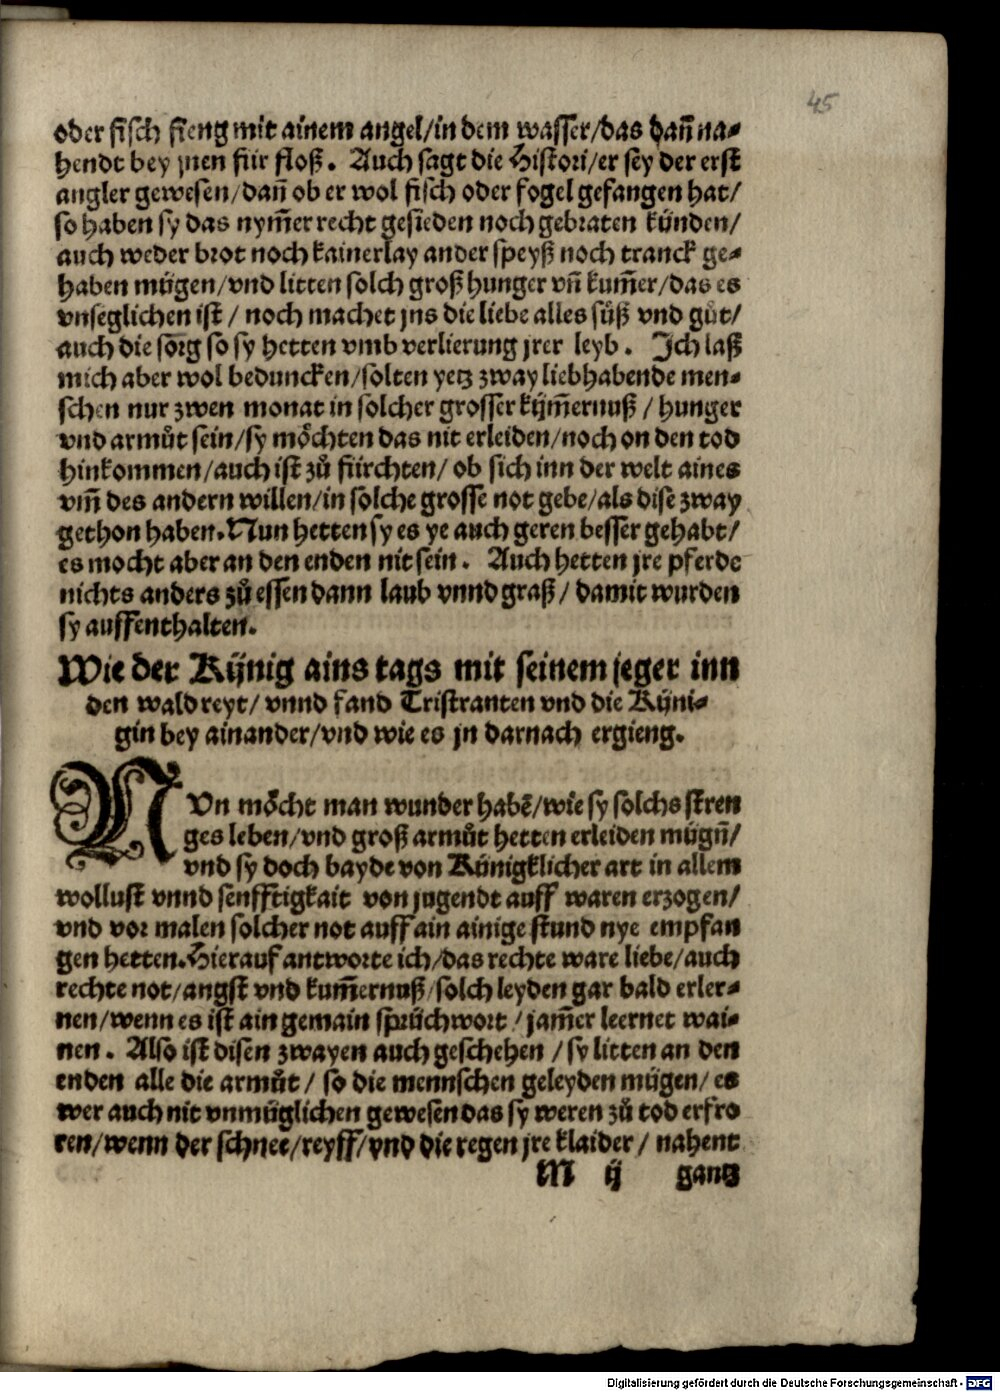 45
oder fisch fieng mit ainem angel/in dem wasser/das dañ na⸗
hendt bey jnen für floß. Auch sagt die Histori/er sey der erst
angler gewesen/dañ ob er wol fisch oder fogel gefangen hat/
so haben sy das nym̃er recht gesieden noch gebraten künden/
auch weder brot noch kainerlay ander speyß noch tranck ge⸗
haben mügen/vnd litten solch groß hunger vñ kum̃er/das es
vnseglichen ist / noch machet jns die liebe alles süß vnd gůt/
auch die sorg so sy hetten vmb verlierung jrer leyb. Ich laß
mich aber wol beduncken/solten yetz zway liebhabende men⸗
schen nur zwen monat in solcher grosser kűm̃ernuß / hunger
vnd armůt sein/sy möchten das nit erleiden/noch on den tod
hinkommen/auch ist zů fürchten/ ob sich inn der welt aines
vm̃ des andern willen/in solche grosse not gebe/als dise zway
gethon haben. Nun hetten sy es ye auch geren besser gehabt/
es mocht aber an den enden nit sein. Auch hetten jre pferde
nichts anders zů essen dann laub vnnd graß / damit wurden
sy auffenthalten.
Wie der Kűnig ains tags mit seinem jeger inn
den wald reyt/ vnnd fand Tristranten vnd die Kűni⸗
gin bey ainander/vnd wie es jn darnach ergieng.
NVn möcht man wunder habē/wie sy solchs stren
ges leben/vnd groß armůt hetten erleiden mügñ/
vnd sy doch bayde von Künigklicher art in allem
wollust vnnd senfftigkait von jugendt auff waren erzogen/
vnd vor malen solcher not auff ain ainige stund nye empfan
gen hetten. Hierauf antworte ich/das rechte ware liebe/auch
rechte not/angst vnd kum̃ernuß/solch leyden gar bald erler⸗
nen/wenn es ist ain gemain sprüchwort / jam̃er leernet wai⸗
nen. Also ist disen zwayen auch geschehen / sy litten an den
enden alle die armůt / so die mennschen geleyden mügen/ es
wer auch nit vnmüglichen gewesen das sy weren zů tod erfro
ren/wenn der schnee/reyff/vnd die regen jre klaider / nahent
M ij gantz
Digitalisierung gefördert durch die Deutsche Forschungsgemeinschaft - DFG